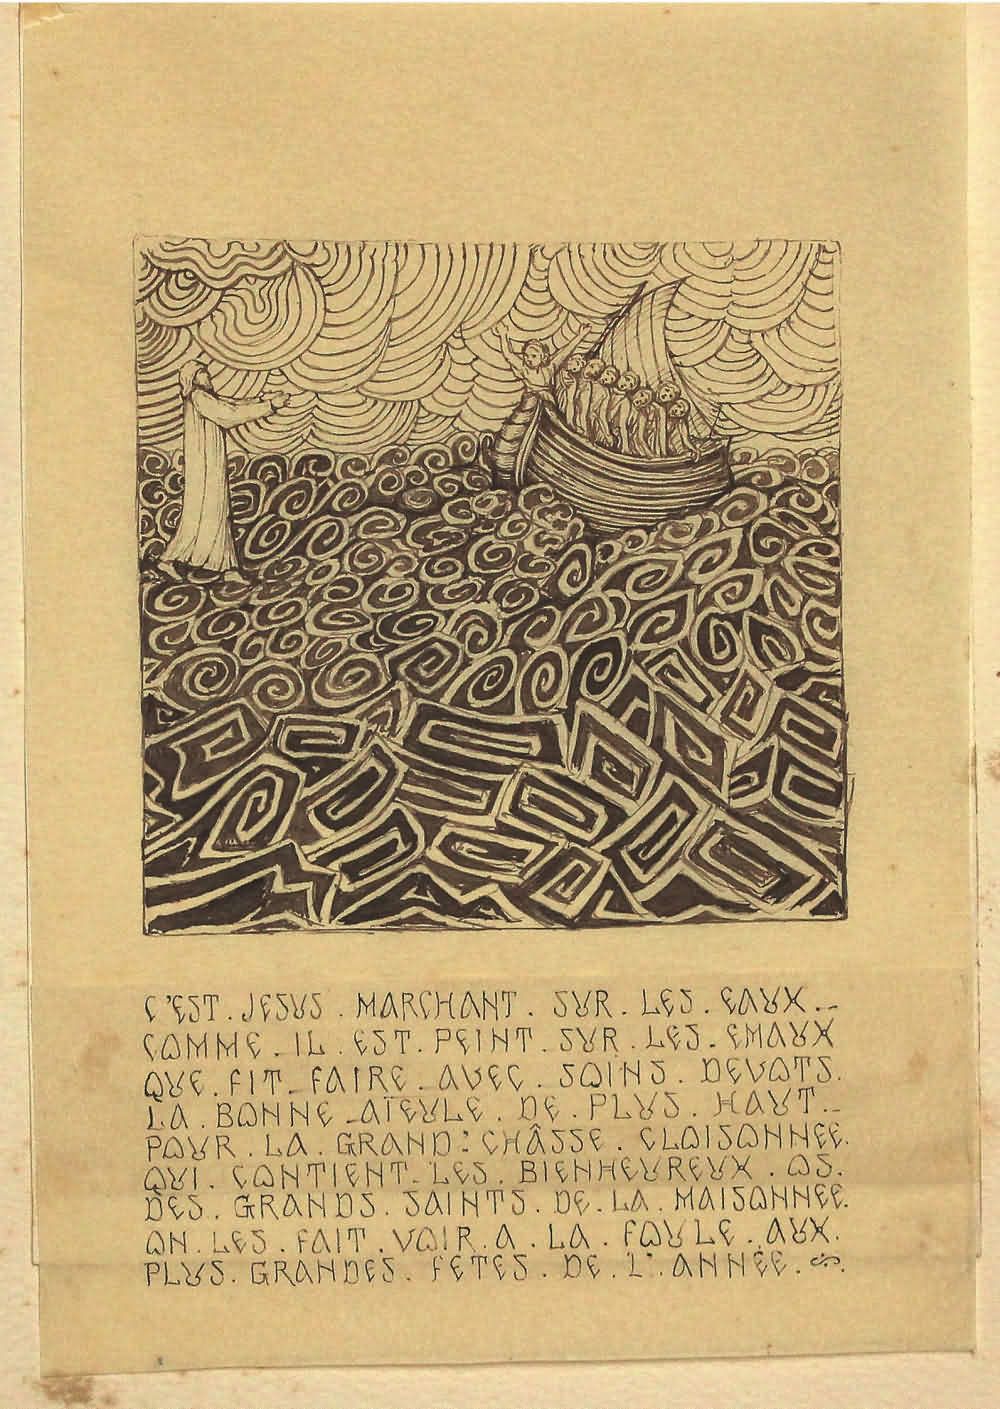 C'EST . JESUS . MARCHANT . SUR . LES . EAUX . _
COMME . IL . EST . PEINT . SUR . LES . EMAUX
QUE . FIT _ FAIRE _ AVEC . SOINS . DEVOTS .
LA . BONNE _ AÏEULE . DE . PLUS . HAUT . _
POUR . LA . GRAND : CHÂSSE . CLOISONNEE .
QUI . CONTIENT . LES . BIENHEUREUX . OS .
DES . GRANDS . SAINTS . DE . LA . MAISONNEE .
ON . LES . FAIT . VOIR . A . LA . FOULE . AUX .
PLUS . GRANDES . FETES . DE . L' . ANNÉE .